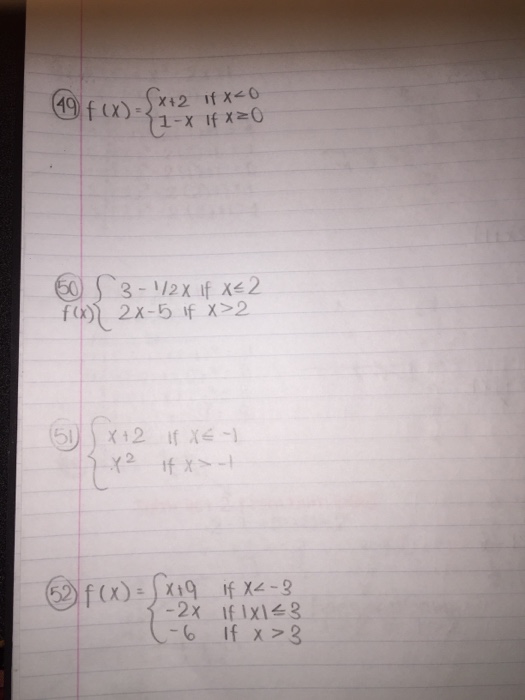 49 f(x)={x+2 if x<0
1-x if x≥0
50 { 3-1/2x if x≤2
f(x){ 2x-5 if x>2
51 { x+2 if x≤-1
x² if x>-1
52 f(x)={x+9 if x<-3
-2x if |x|≤3
-6 if x>3